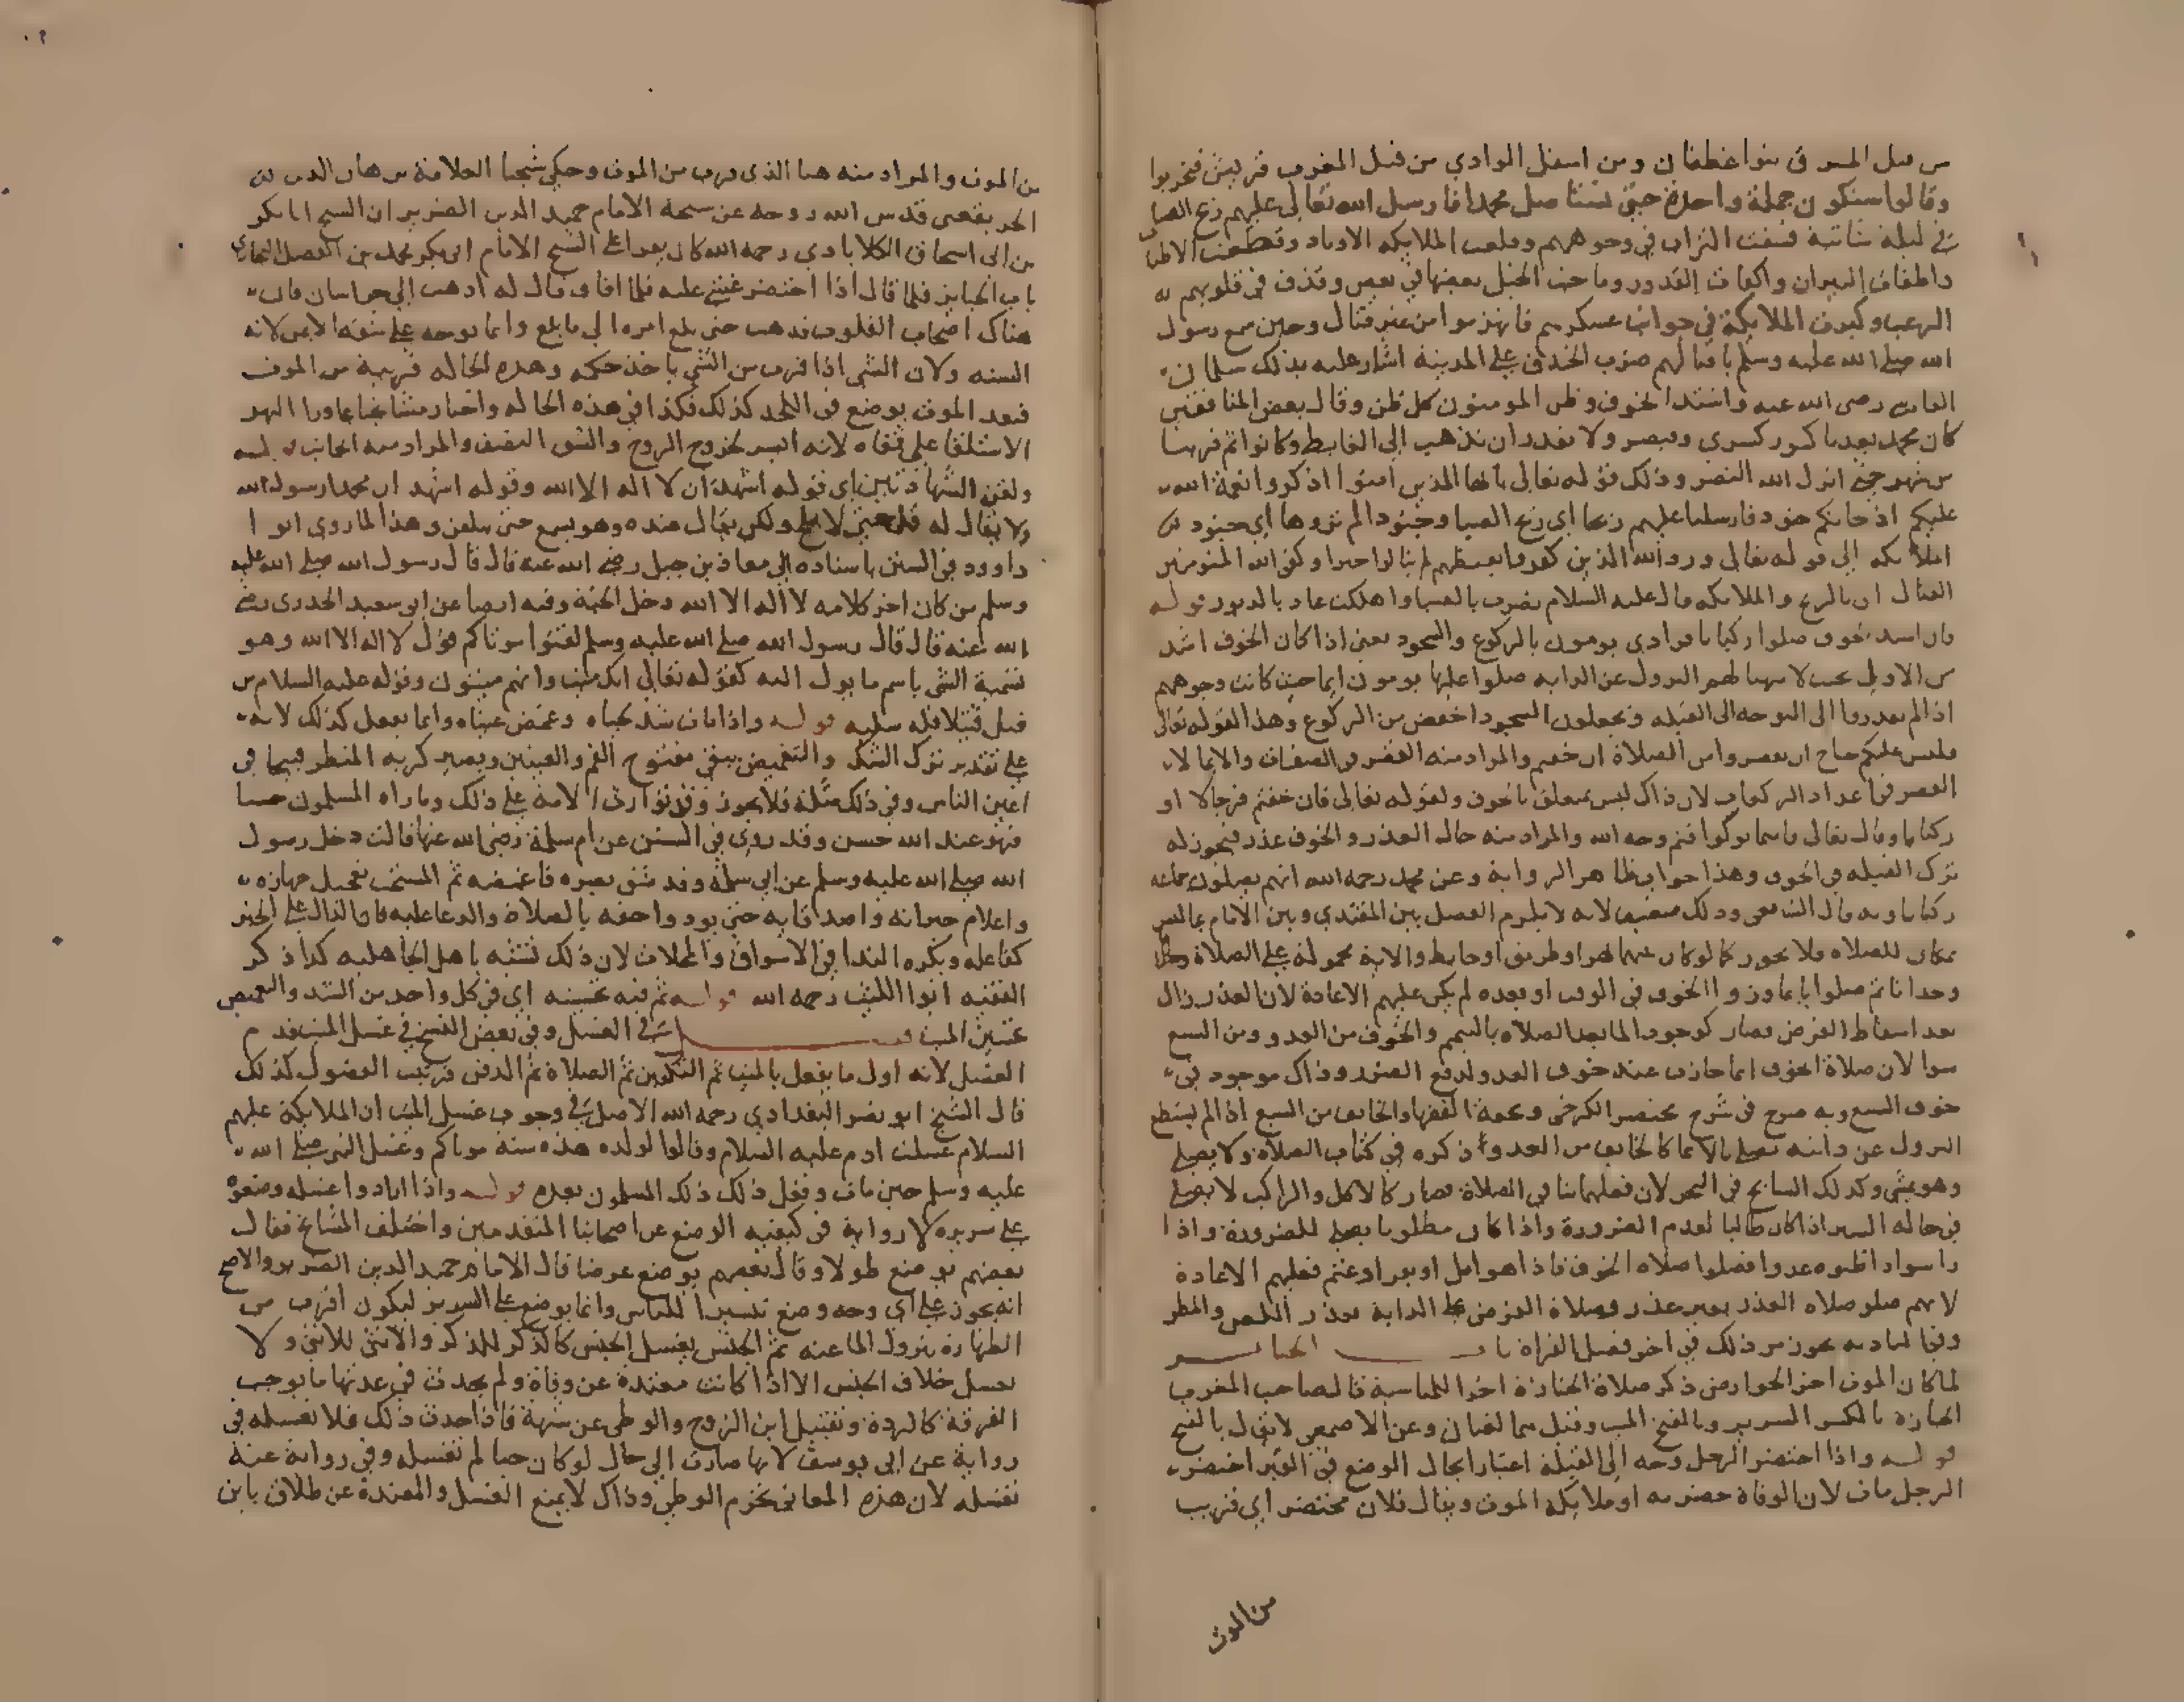 من قبل المشرق بنوا غطفان ومن اسفل الوادي من قبل المغرب قريش فتحزبوا
وقالوا سنكون جملة واحدة حتى نستاصل محمدا فارسل الله تعالى عليهم ريح الصبا
في ليلة شاتية فسفت التراب في وجوههم وقلعت الملايكه الاوتاد وقطعت الاطناب
واطفات النيران واكفات القدور وماجت الخيل بعضها في بعض وقذف في قلوبهم
الرعب وكبرت الملايكة في جوانب عسكرهم فانهزموا من غير قتال وحين سمع رسول
الله صلى الله عليه وسلم باقبالهم ضرب الخندق على المدينة اشار عليه بذلك سلمان
الفارسي رضي الله عنه واشتد الخوف وظن المومنون كل ظن وقال بعض المنافقين
كان محمد يعدنا كنوز كسرى وقيصر ولا نقدر ان نذهب الى الغايط وكانوا ثم قريبا
من شهر حتى انزل الله النصر وذلك قوله تعالى يا ايها الذين امنوا اذكروا نعمة الله
عليكم اذ جاتكم جنود فارسلنا عليهم ريحا اي ريح الصبا وجنودا لم تروها اي جنود من
الملائكه الى قوله تعالى ورد الله الذين كفروا بغيظهم لم ينالوا خيرا وكفى الله المومنين
القتال اي بالريح والملايكه قال عليه السلام نصرت بالصبا واهلكت عاد بالدبور قوله
فان اشتد الخوف صلوا ركبانا فرادى يومون بالركوع والسجود يعني اذا كان الخوف اشد
من الاول بحيث لا يتهيا لهم النزول عن الدابه صلوا عليها يومون ايما حيث كانت وجوههم
اذا لم يقدروا الى التوجه الى القبله ويجعلون السجود اخفض من الركوع وهذا لقوله تعالى
فليس عليكم جناح ان تقصروا من الصلاة ان خفتم والمراد منه القصر في الصفات والايما لان
القصر في اعداد الركعات لان ذاك ليس بمتعلق بالخوف ولقوله تعالى فان خفتم فرجالا او
ركبانا وقال تعالى فاينما تولوا فثم وجه الله والمراد منه حال العذر والخوف عذر فيجوز له
ترك القبله في الخوف وهذا جواب ظاهر الرواية وعن محمد رحمه الله انهم يصلون جماعه
ركبانا وبه قال الشافعي وذلك ضعيف لانه لا يلزم الفصل بين المقتدي وبين الامام بما ليس
بمكان للصلاه فلا يجوز كما لو كان بينهما نهر او طريق او حايط والاية محمولة على الصلاة
وحدانا ثم صلوا بايما وزوال الخوف في الوقت او بعده لم يكن عليهم الاعادة لان العذر زال
بعد اسقاط الفرض فصار كوجود الما بعد الصلاه بالتيمم والخوف من العدو ومن السبع
سوا لان صلاة الخوف انما جازت عند خوف العدو لدفع الضرر وذاك موجود في
خوف السبع وبه صرح في شرح مختصر الكرخي وتحفة الفقها والخايف من السبع اذا لم يستطع
النزول عن دابته يصلي بالايما كالخايف من العدو ذكره في كتاب الصلاة ولا يصلي
وهو يمشي وكذلك السابح في البحر لان فعلهما ينافي الصلاة فصار كالاكل والراكب لا يصلي
في حاله السير اذا كان طالبا لعدم الضرورة واذا كان مطلوبا يصلي للضرورة واذا
راسوادا ظنوه عدوا فصلوا صلاه الخوف فاذا هو ابل او بقر او غنم فعليهم الاعادة
لانهم صلو صلاه العذر بغير عذر وصلاة الفرض على الدابة بعذر اللص والمطر
وفي البادية يجوز مر ذلك في اخر فصل القراة باب الجنايز
لما كان الموت اخر العوارض ذكر صلاة الجنازة اخرا للمناسبة قال صاحب المغرب
الجنازه بالكسر السرير وبالفتح الميت وقيل هما لغتان وعن الاصمعي لا يقال بالفتح
قوله واذا احتضر الرجل وجه الى القبلة اعتبارا بحال الوضع في القبر احتضر
الرجل مات لان الوفاة حضرته او ملايكة الموت ويقال فلان محتضر اي قريب
من الموت
من الموت والمراد منه هنا الذي قرب من الموت وحكي شيخنا العلامة برهان الدين
الخريفعني قدس الله روحه عن شيخه الامام حميد الدين الضرير ان الشيخ ابا بكر
بن ابي اسحاق الكلابادي رحمه الله كان يقرا على الشيخ الامام ابي بكر محمد بن الفضل البخاري
باب الجنايز فلما قال اذا احتضر غشي عليه فلما افاق قال له اذهب الى خراسان فان
هناك اصحاب القلوب فذهب حتى بلغ امره الى ما بلغ وانما يوجه على شقه الايمن لانه
السنه ولان الشي اذا قرب من الشي ياخذ حكمه وهذه الحاله قريبة من الموت
فبعد الموت يوضع في اللحد كذلك فكذا في هذه الحاله واختار مشايخنا بماورا النهر
الاستلقا على قفاه لانه ايسر لخروج الروح والشق النصف والمراد منه الجانب قوله
ولقن الشهادتين اي قوله اشهد ان لا اله الا الله وقوله اشهد ان محمدا رسول الله
ولا يقال له قل حتى لا ولكن يقال عنده وهو يسمع حتى يتلقن وهذا لما روى ابو
داوود في السنن باسناده الى معاذ بن جبل رضي الله عنه قال قال رسول الله صلى الله عليه
وسلم من كان اخر كلامه لا اله الا الله دخل الجنة وفيه ايضا عن ابي سعيد الخدري رضي
الله عنه قال قال رسول الله صلى الله عليه وسلم لقنوا موتاكم قول لا اله الا الله وهو
تسمية الشي باسم ما يول اليه كقوله تعالى انك ميت وانهم ميتون وقوله عليه السلام من
قتل قتيلا فله سلبه قوله واذا مات شد لحياه وغمض عيناه وانما يفعل كذلك لانه
على تقدير ترك الشد والتغميض يبقى مفتوح الفم والعينين ويصير كريه المنظر قبيحا في
اعين الناس وفي ذلك مثلة فلا يجوز وقد توارث الامة على ذلك وما راه المسلمون حسنا
فهو عند الله حسن وقد روى في السنن عن ام سلمة رضي الله عنها قالت دخل رسول
الله صلى الله عليه وسلم عن ابي سلمة وقد شق بصره فاغمضه ثم المستحب تعجيل جهازه
واعلام جيرانه واصدقايه حتى يودوا حقه بالصلاة والدعا عليه فان الدال على الخير
كفاعله ويكره الندا في الاسواق والمحلات لان ذلك تشبه باهل الجاهليه كذا ذكر
الفقيه ابوا الليث رحمه الله قوله ثم فيه تحسينه اي في كل واحد من الشد والتغميض
تحسين الميت فصل في الغسل وفي بعض النسخ في غسل الميت قدم
الغسل لانه اول ما يفعل بالميت ثم التكفين ثم الصلاة ثم الدفن فرتب الفصول كذلك
قال الشيخ ابو نصر البغدادي رحمه الله الاصل في وجوب غسل الميت ان الملايكة عليهم
السلام غسلت ادم عليه السلام وقالوا لولده هذه سنة موتاكم وغسل النبي صلى الله
عليه وسلم حين مات وفعل ذلك ذلك المسلمون بعده قوله واذا ارادوا غسله وضعوه
على سريره لا رواية في كيفيه الوضع عن اصحابنا المتقدمين واختلف المشايخ فقال
بعضهم يوضع طولا وقال بعضهم يوضع عرضا قال الامام حميد الدين الضرير والاصح
انه يجوز على اي وجه وضع تيسيرا للناس وانما يوضع على السرير ليكون اقرب من
الطهارة بنزول الما عنه ثم الجنس يغسل الجنس كالذكر للذكر والانثى للانثى ولا
يغسل خلاف الجنس الا اذا كانت معتدة عن وفاة ولم يحدث في عدتها ما يوجب
الفرقة كالردة وتقبيل ابن الزوج والوطى عن شبهة فاذا حدث ذلك فلا تغسله في
رواية عن ابي يوسف لانها صارت الى حال لو كان حيا لم تغسله وفي رواية عنه
تغسله لان هذه المعاني تحرم الوطي وذاك لا يمنع الغسل والمعتدة عن طلاق باين